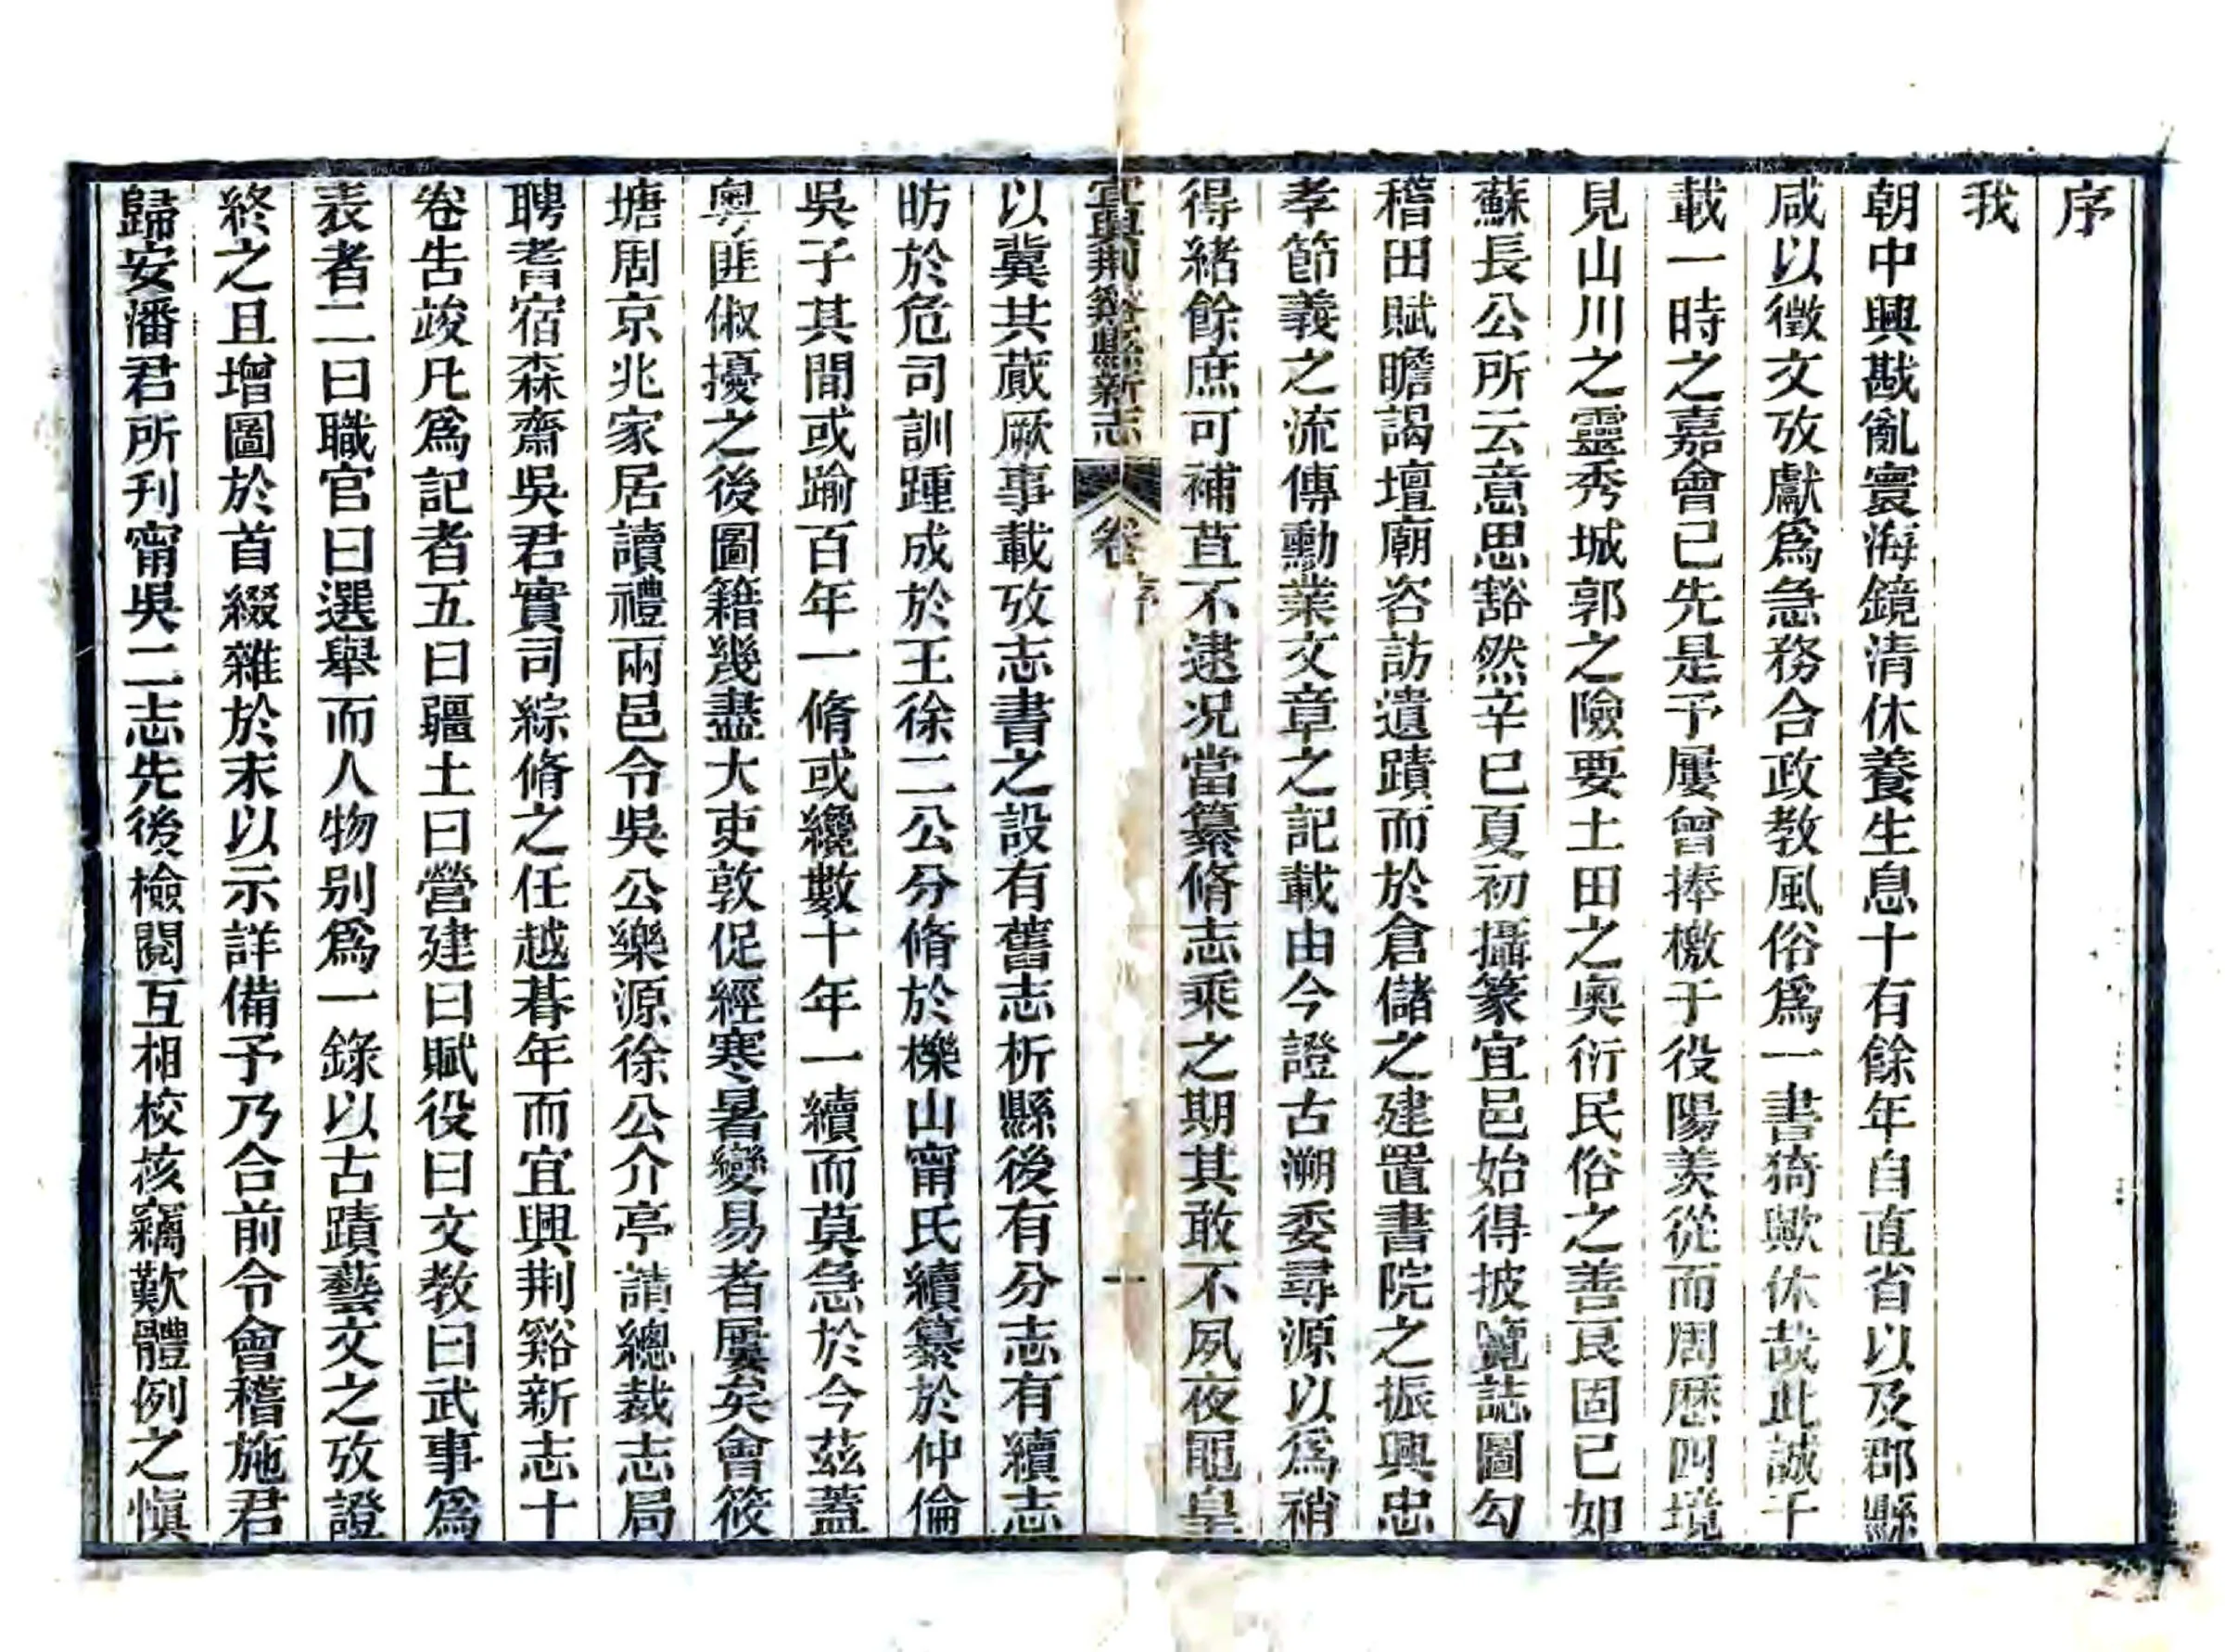 序
我
朝中興戡亂寰海鏡清休養生息十有餘年自直省以及郡縣
咸以徵文攷獻爲急務合政教風俗爲一書猗歟休哉此誠千
載一時之嘉會已先是予屢曾捧檄于役陽羨從而周歴四境
見山川之靈秀城郭之險要土田之奧衍民俗之善良固已如
蘇長公所云意思豁然辛巳夏初攝篆宜邑始得披覽誌圖勾
稽田賦瞻謁壇廟咨訪遺蹟而於倉儲之建置書院之振興忠
孝節義之流傳勳業文章之記載由今證古溯委尋源以爲稍
得緒餘庶可補苴不逮况當纂脩志乘之期其敢不夙夜黽皇
宜興荆谿縣新志 卷 序 一
以冀共蕆厥事載攷志書之設有舊志析縣後有分志有續志
昉於危司訓踵成於王徐二公分脩於櫟山甯氏續纂於仲倫
吳子其間或踰百年一脩或纔數十年一續而莫急於今茲蓋
粵匪俶擾之後圖籍幾盡大吏敦促經寒暑變易者屢矣會筱
塘周京兆家居讀禮兩邑令吳公樂源徐公介亭請總裁志局
聘耆宿森齋吳君實司綜脩之任越朞年而宜興荆谿新志十
卷告竣凡爲記者五曰疆土曰營建曰賦役曰文教曰武事爲
表者二曰職官曰選舉而人物别爲一錄以古蹟藝文之攷證
終之且增圖於首綴雜於末以示詳備予乃合前令會稽施君
歸安潘君所刋甯吳二志先後檢閱互相校核竊歎體例之愼